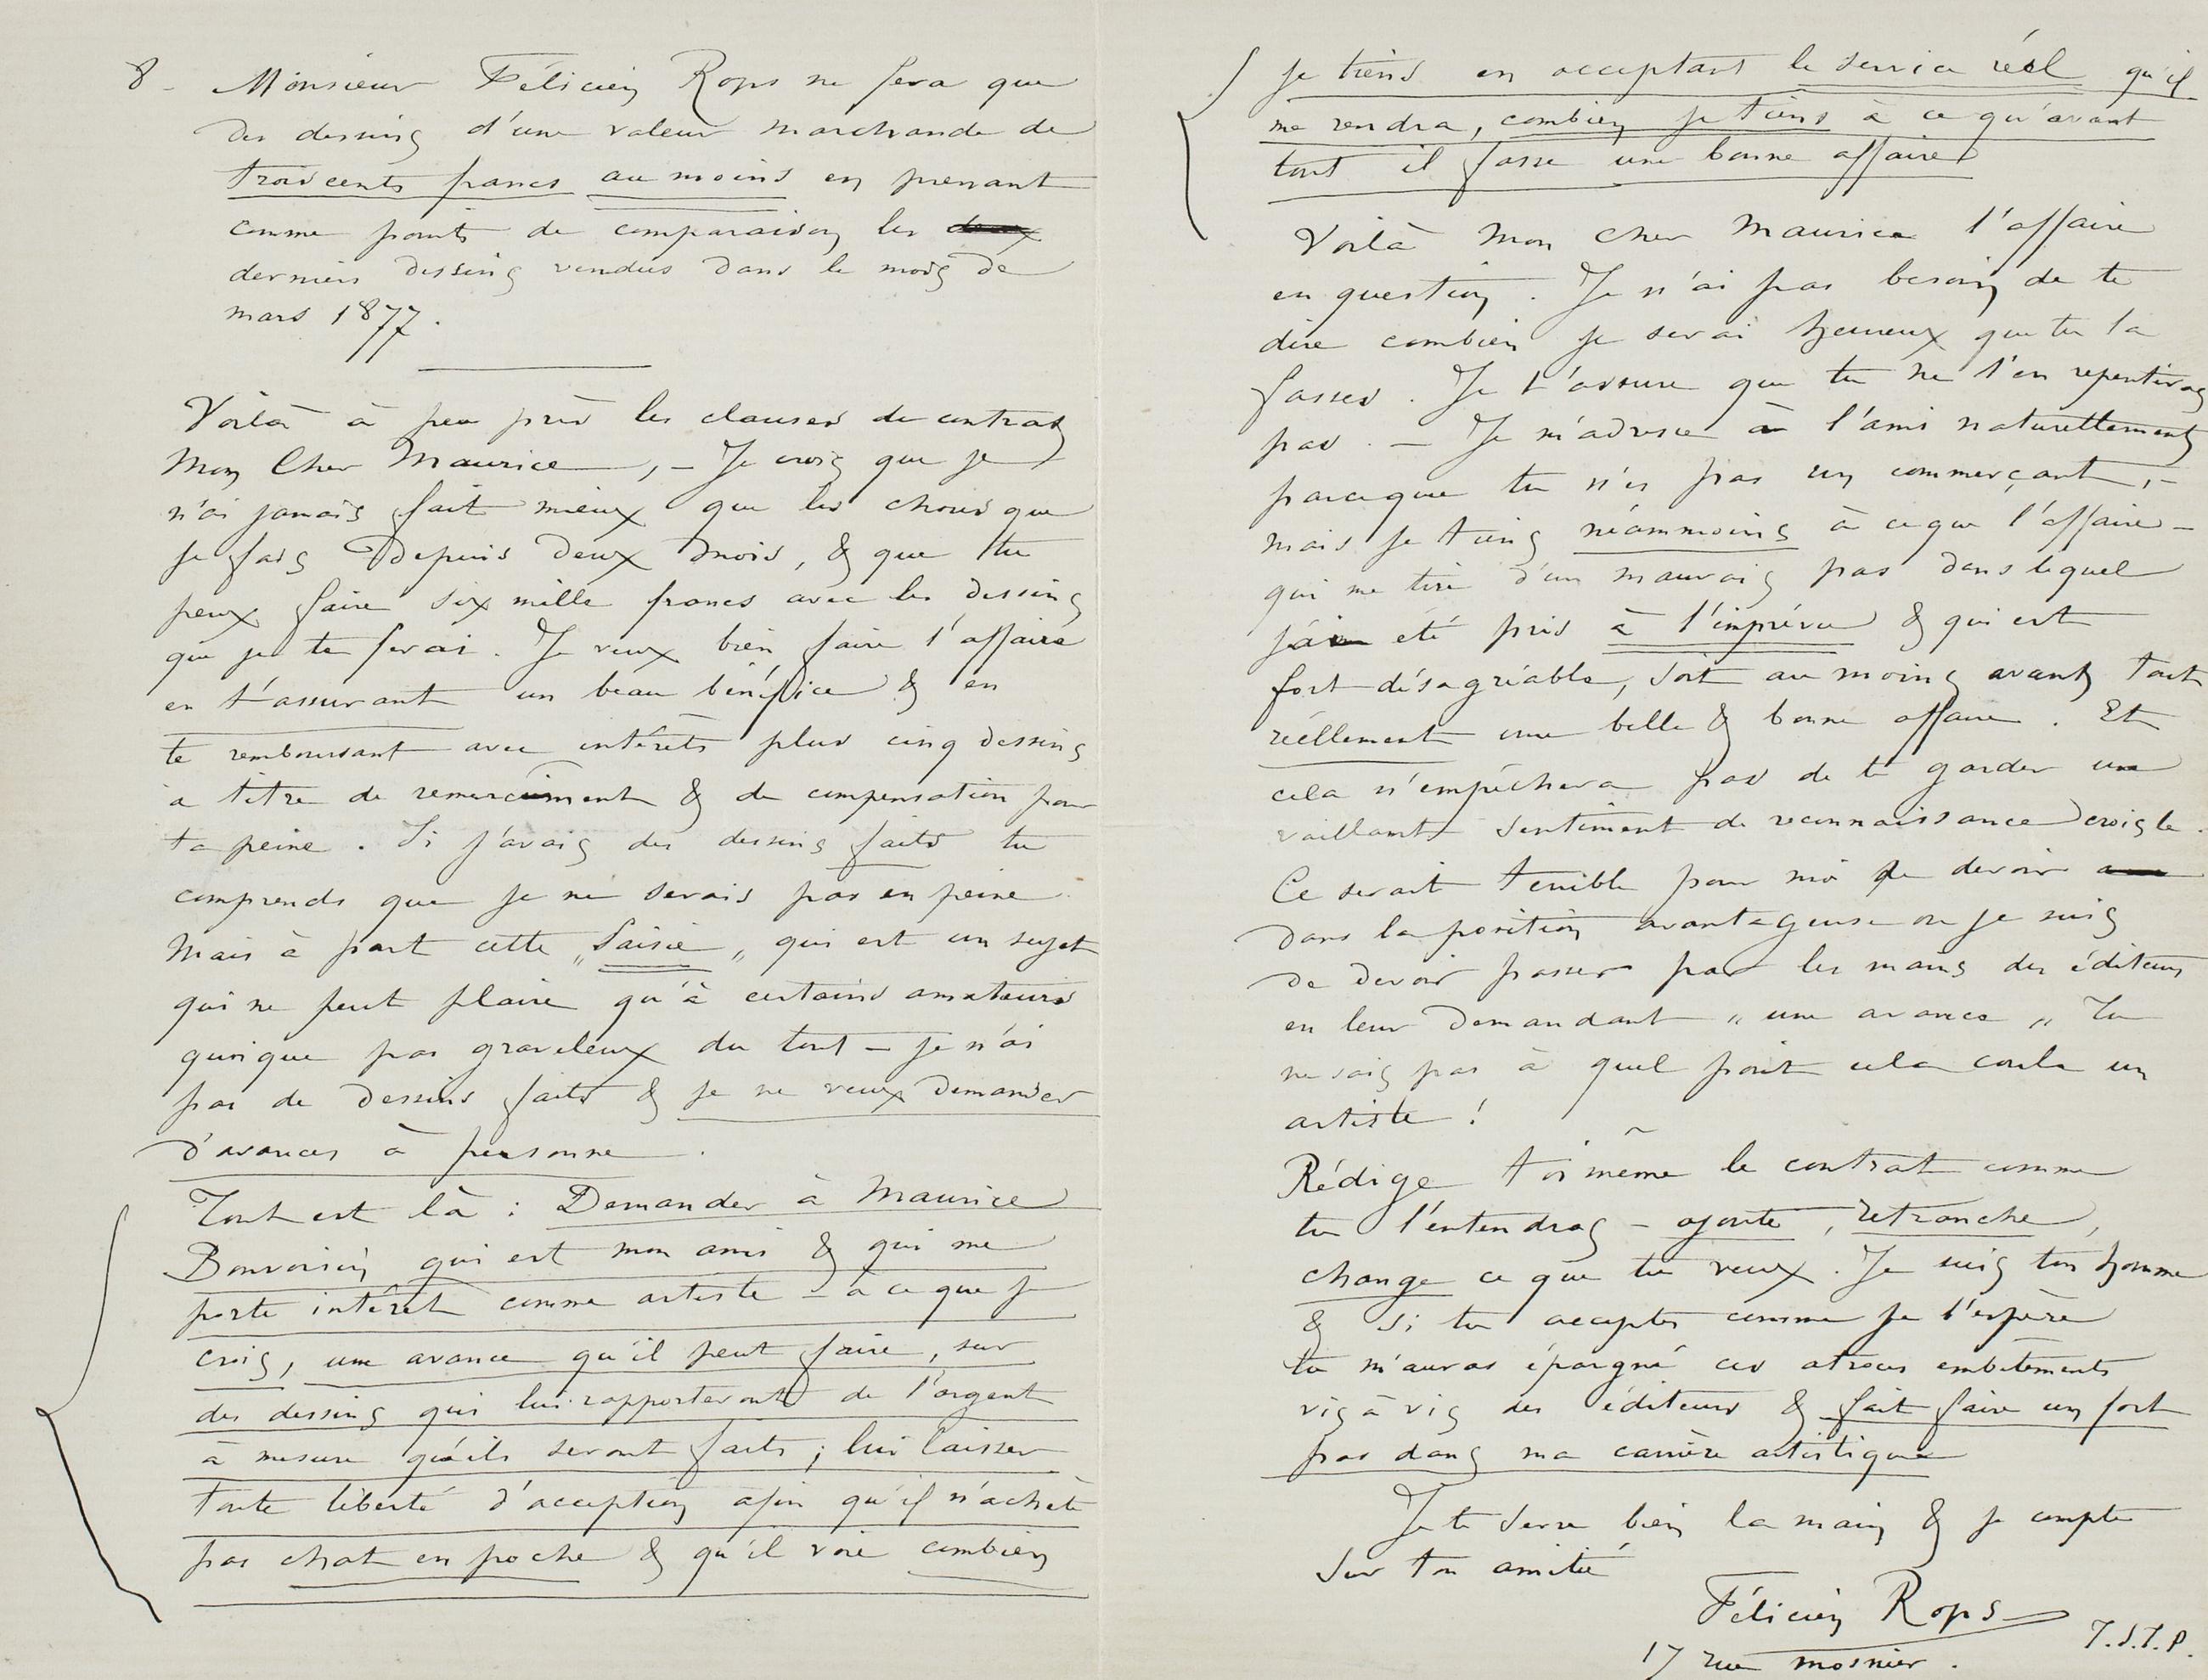 8 - Monsieur Félicien Rops ne fera que
des dessins d'une valeur marchande de
trois cents francs au moins en prenant
comme points de comparaison les
derniers dessins vendus dans le mois de
mars 1877.
Voilà à peu près les clauses du contrat
Mon Cher Maurice, – Je crois que je
n'ai jamais fait mieux que les choses que
je fais depuis deux mois, & que tu
peux faire six mille francs avec les dessins
que je te ferai. Je veux bien faire l'affaire
en t'assurant un beau bénéfice & en
te remboursant avec intérêts plus cinq dessins
à titre de remerciement & de compensation pour
ta peine. Si j'avais des dessins faits tu
comprends que je ne serais pas en peine
Mais à part cette „Saisie„ qui est un sujet
qui ne peut plaire qu'à certains amateurs
quoique pas graveleux du tout – je n'ai
pas de dessins faits & je ne veux demander
d'avances à personne.
Tout est là : Demander à Maurice
Bonvoisin qui est mon ami & qui me
porte intérêt comme artiste – à ce que je
crois, une avance qu'il peut faire, sur
des dessins qui lui rapporteront de l'argent
à mesure qu'ils seront faits ; lui laisser
toute liberté d'acception afin qu'il n'achète
pas chat en poche & qu'il voie combien
je tiens en acceptant le service réel qu'il
me rendra, combien je tiens à ce qu'avant
tout il fasse une bonne affaire
Voilà mon cher Maurice l'affaire
en question. Je n'ai pas besoin de te
dire combien je serai heureux que tu la
fasses. Je t'assure que tu ne t'en repentiras
pas. – Je m'adresse à l'ami naturellement
parceque tu n'es pas un commerçant, –
mais je tiens néammoins à ce que l'affaire –
qui me tire d'un mauvais pas dans lequel
j'ai été pris à l'imprévu & qui est
fort désagréable, soit au moins avant tout
réellement une belle & bonne affaire. Et
cela n'empêchera pas de te garder un
vaillant sentiment de reconnaissance crois le.
Ce serait terrible pour moi de devoir
dans la position avantageuse où je suis
de devoir passer par les mains des éditeurs
en leur demandant „une avance„ Tu
ne sais pas à quel point cela coule un
artiste !
Rédige toi même le contrat comme
tu l'entendras – ajoute, retranche,
change ce que tu veux. Je suis ton homme
& si tu acceptes comme je l'espère
tu m'auras épargné ces atroces embêtements
vis à vis des éditeurs & fait faire un fort
pas dans ma carrière artistique
Je te serre bien la main & je compte
sur ton amitié
Félicien Rops
17 rue Mosnier.
T.S.T.P.